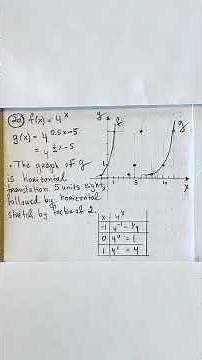 20 f(x) = 4^x
g(x) = 4^{0.5x-5}
= 4^{½x-5}
• The graph of g
is horizontal
translation 5 units right,
followed by horizontal
stretch by factor of 2.
y
f
g
1
1
5
10
x
x | 4^x
-1 | 4^{-1} = 1/4
0 | 4^0 = 1
1 | 4^1 = 4